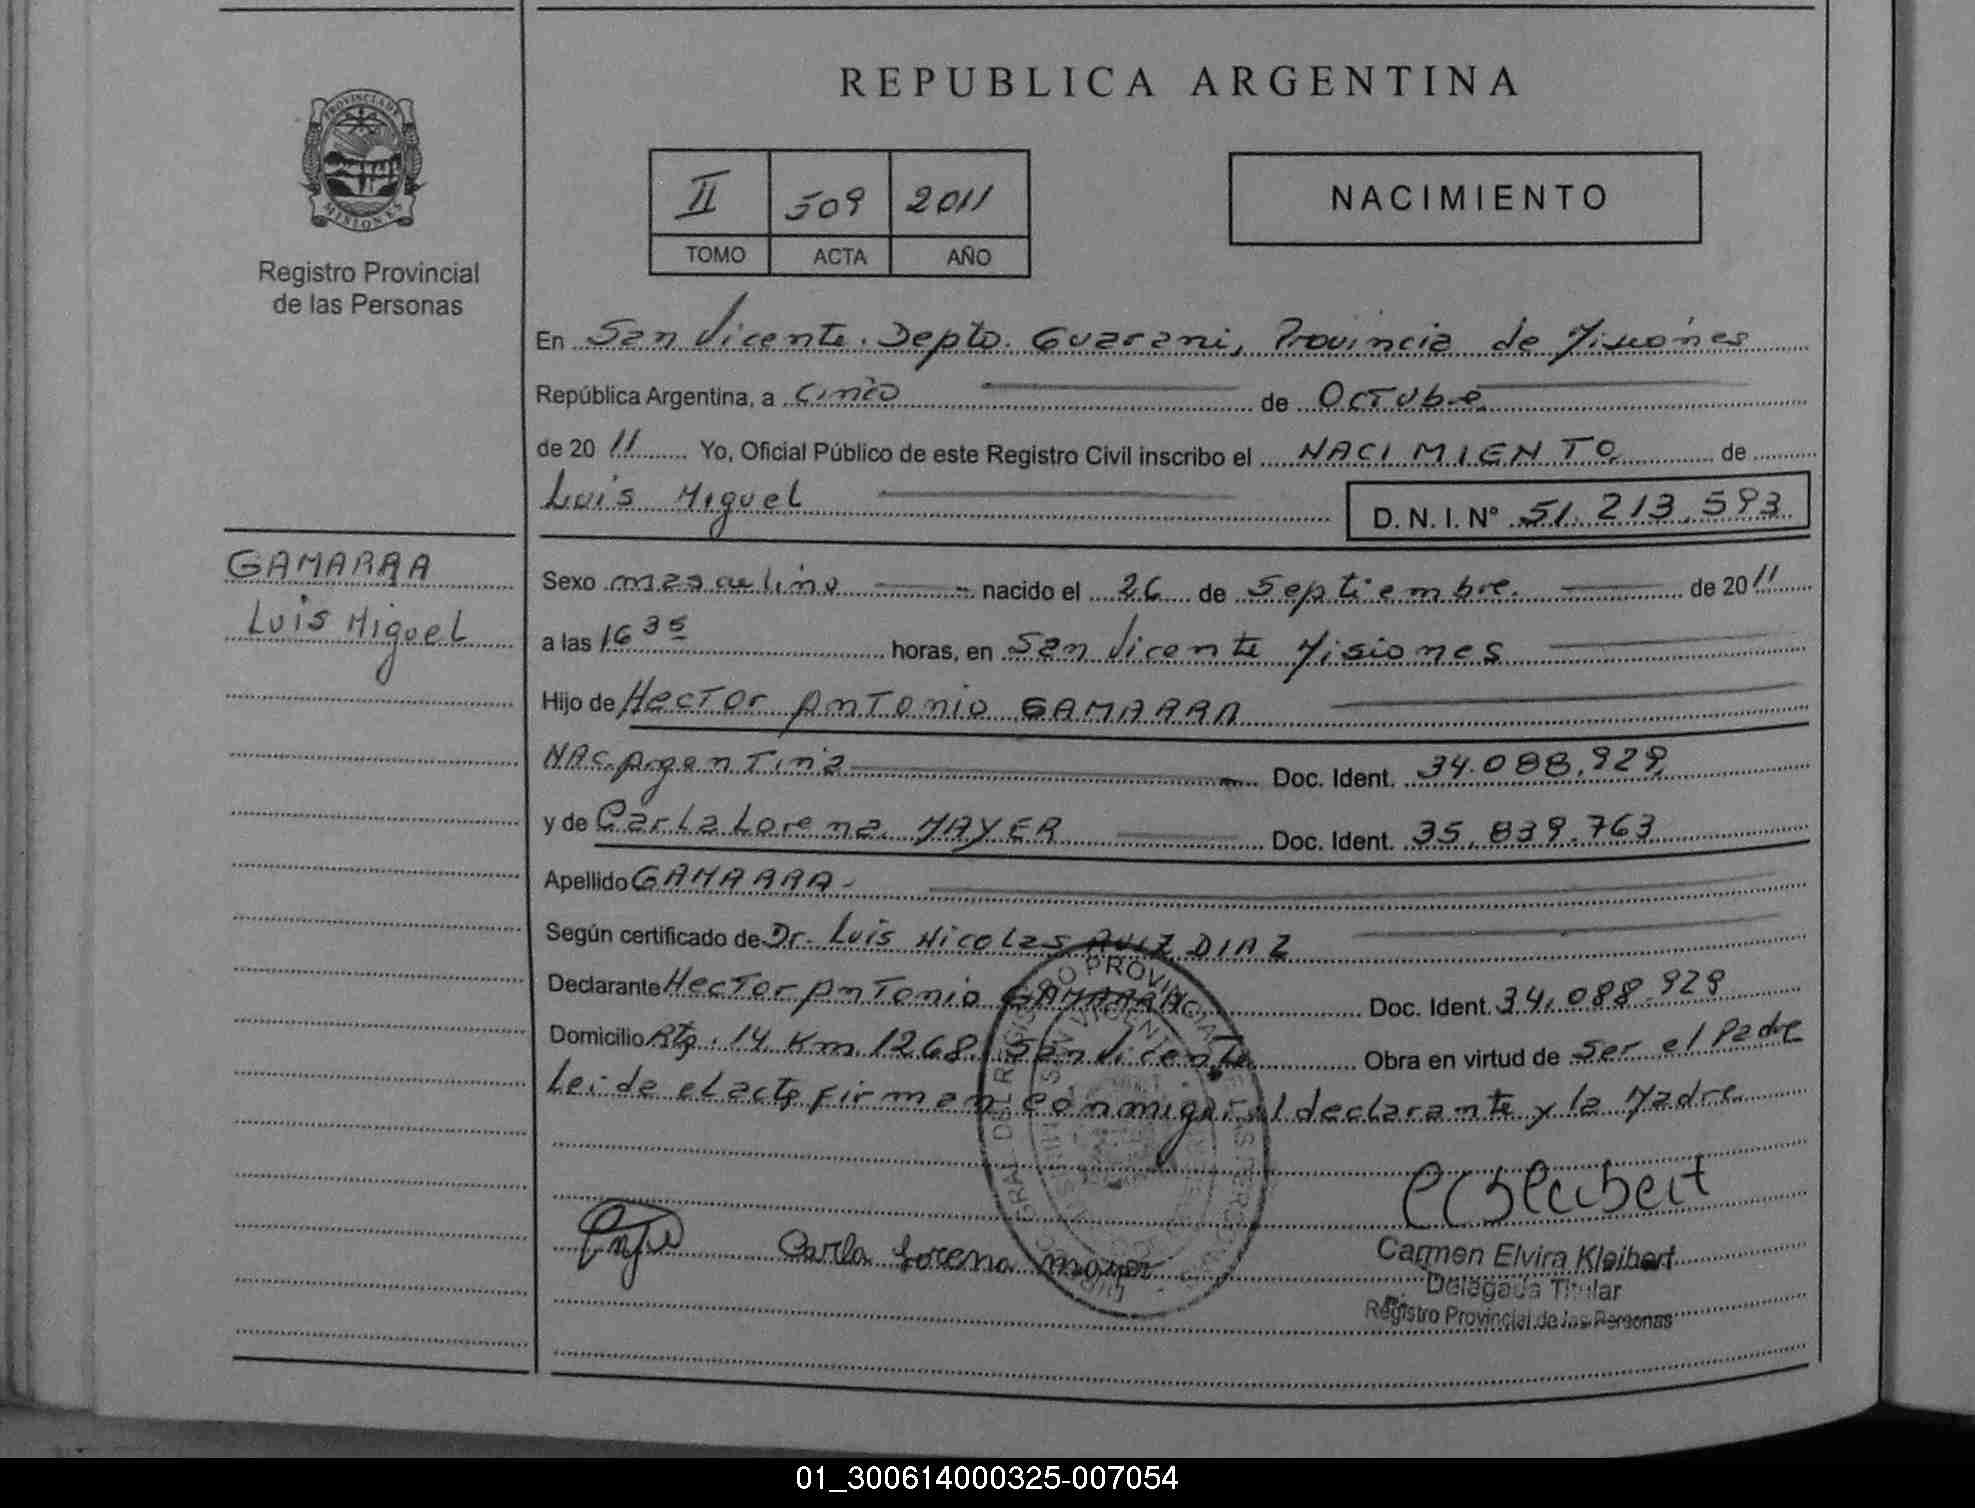 REPUBLICA ARGENTINA
PROVINCIA DE
MISIONES
Registro Provincial
de las Personas
II 509 2011
TOMO ACTA AÑO
NACIMIENTO
En San Vicente. Depto. Guarani, Provincia de Misiones
República Argentina, a Cinco de Octubre
de 2011 Yo, Oficial Público de este Registro Civil inscribo el NACIMIENTO de
Luis Miguel D. N. I. N° 51.213.593
GAMARRA
Luis Miguel
Sexo masculino nacido el 26 de Septiembre. de 2011
a las 16 35 horas, en San Vicente Misiones
Hijo de Hector Antonio GAMARRA
NAC. Argentina Doc. Ident. 34.088.929
y de Carla Lorena MAYER Doc. Ident. 35.839.763
Apellido GAMARRA
Según certificado de Dr. Luis Nicolas RUIZ DIAZ
Declarante Hector Antonio GAMARRA Doc. Ident. 34.088.929
Domicilio Rta. 14 Km 1268 San Vicente Obra en virtud de ser el Padre
Leida el acta firman conmigo el declarante y la Madre
Carla Lorena mayer
Carmen Elvira Kleibert
Delegada Titular
Registro Provincial de las Personas
01_300614000325-007054